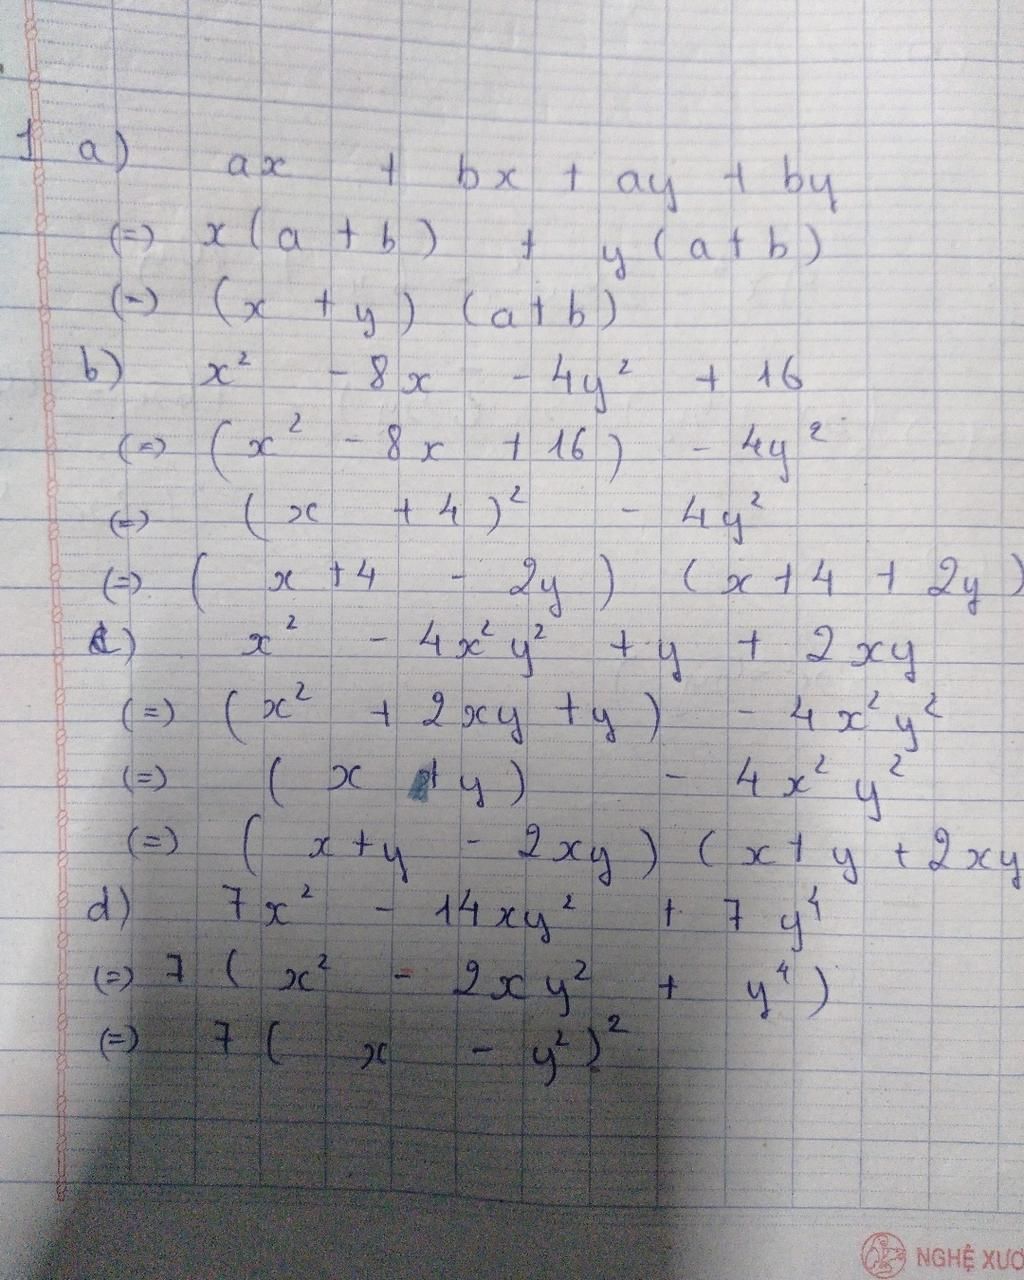 1 a) ax + bx + ay + by
(=) x(a + b) + y(a+b)
(=) (x + y) (a+b)
b) x² - 8x - 4y² + 16
(=) (x² - 8x + 16) - 4y²
(=) (x + 4)² - 4y²
(=) (x+4 - 2y) (x+4 + 2y)
c) x² - 4x²y² + y + 2xy
(=) (x² + 2xy + y) - 4x²y²
(=) (x + y) - 4x²y²
(=) (x+y - 2xy) (x+y + 2xy
d) 7x² - 14xy² + 7y⁴
(=) 7(x² - 2xy² + y⁴)
(=) 7(x - y²)²
NGHỆ XƯƠ